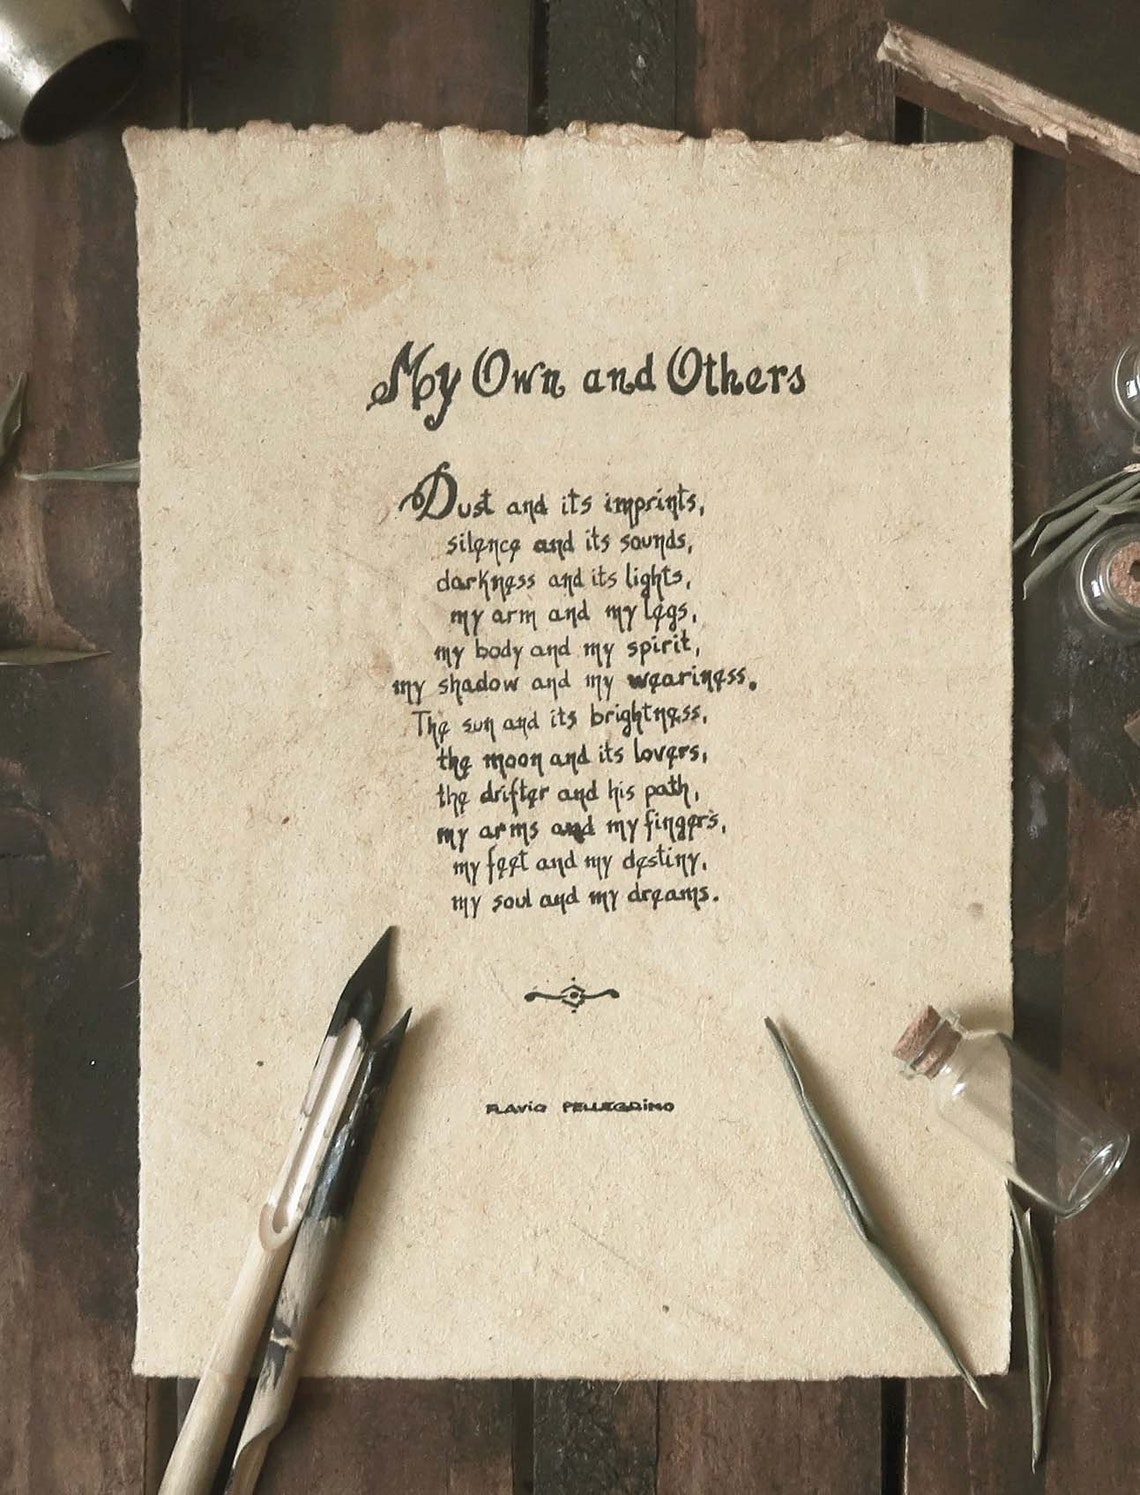 My Own and Others
Dust and its imprints,
silence and its sounds,
darkness and its lights,
my arm and my legs,
my body and my spirit,
my shadow and my weariness.
The sun and its brightness,
the moon and its lovers,
the drifter and his path,
my arms and my fingers,
my feet and my destiny,
my soul and my dreams.
FLAViO PELLEGRiNO